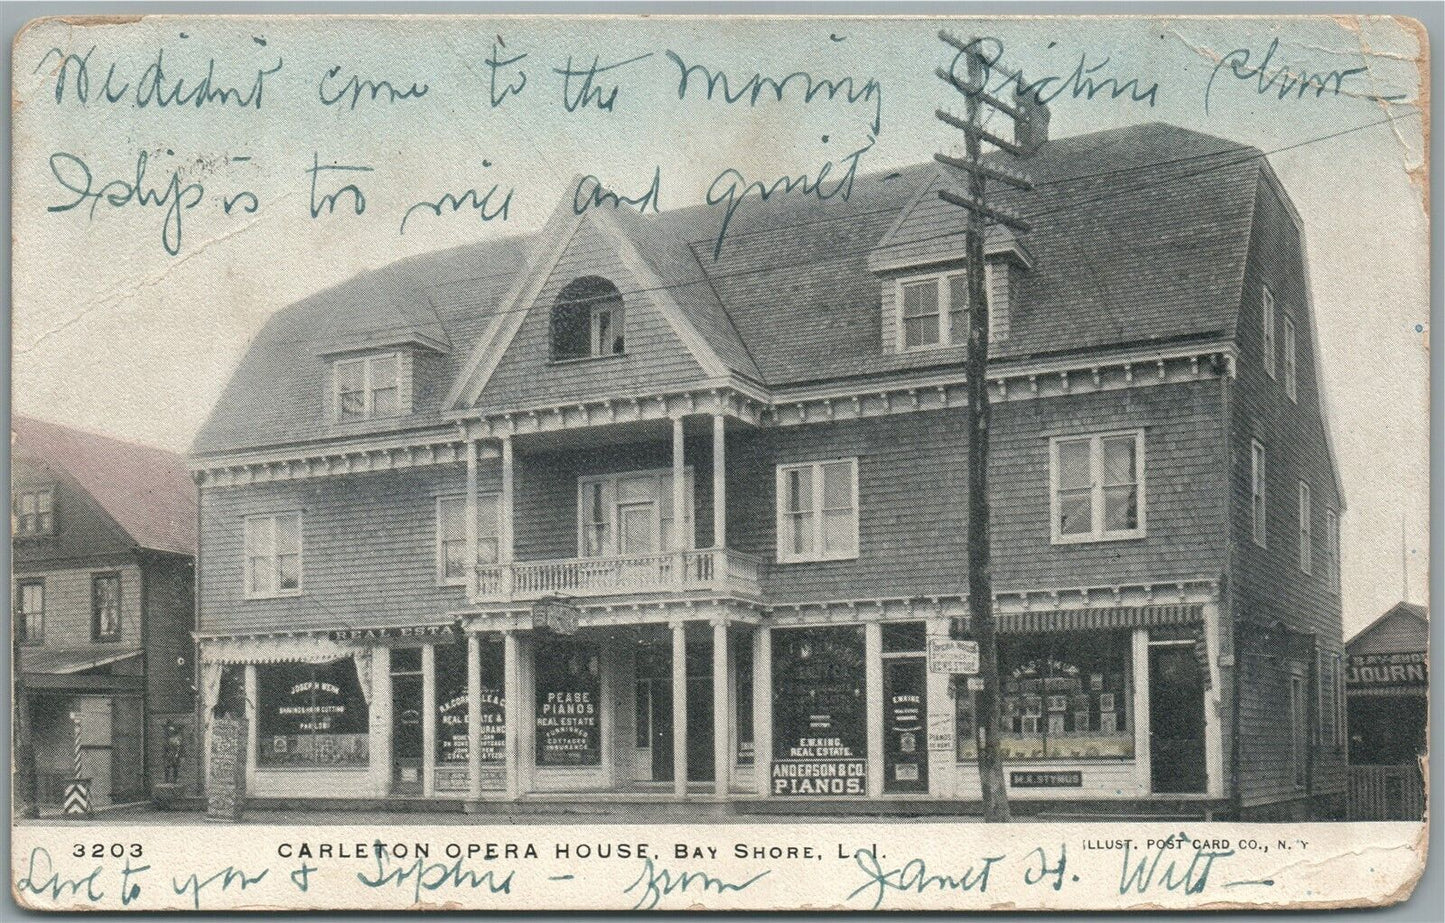 We didn't come to the Moving Picture show —
Islip is too nice and quiet —
REAL ESTA
JOSEPH WEHN
SHAVING & HAIR CUTTING
PARLOR
REAL ESTATE &
INSURANCE
PEASE
PIANOS
REAL ESTATE
FURNISHED
COTTAGES
INSURANCE
E.W.KING.
REAL ESTATE.
ANDERSON & CO.
PIANOS.
E.W.KING
OPERA HOUSE
NEWS STORE
PIANOS
TO RENT
JOURN
3203
CARLETON OPERA HOUSE, BAY SHORE, L. I.
ILLUST. POST CARD CO., N. Y
Love to you & Sophie — from Janet H. Witt —